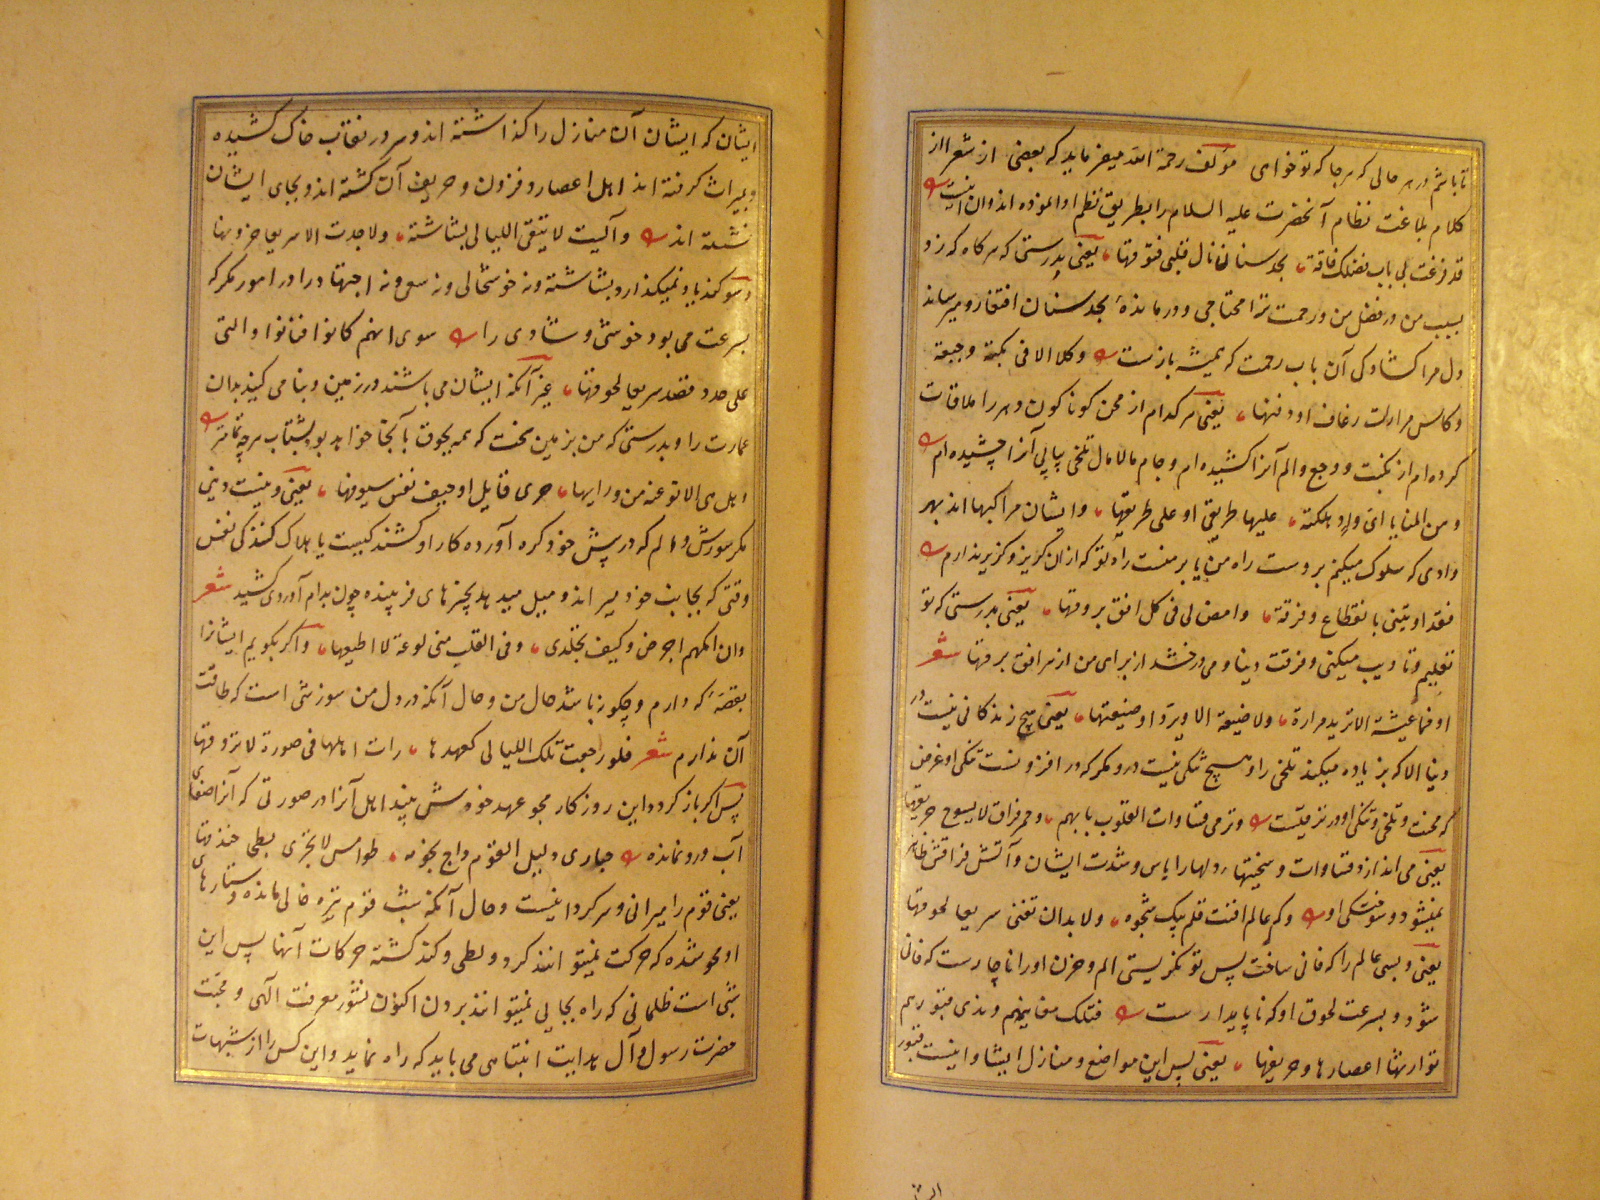 تا باشم در هر حالی که هر جا که تو خواهی مؤلف رحمة الله میفرماید که بعضی از شعرا از
کلام بلاغت نظام آنحضرت علیه السلام را بطریق نظم ادا نموده اند و آن اینست
یعنی بدرستی که هر کاه که زد
بسبب من در فضل من و رحمت ترا محتاجی و درمانده بجد سنان افتقار و میرساند
دل مرا کشادکی آن باب رحمت که همیشه باز ست وکلا الافی بکبة وجیعة
وکاس مرارات یعنی هر کدام از محن کوناکون دهر را ملاقات
کرده ام از نکبت و وجع و الم آنرا کشیده ام و جام مالامال تلخی پیاپی آنرا چشیده ام
ومن المنایا علیها طریقی او علی طریقها و ایشان مراکبها اند بهر
وادی که سلوک میکنم بر وست راه من یا بر منست راه او که از ان کریز و کزیر ندارم
بانقطاع وفرقة وامض لی فی کل افق بروقها یعنی بدرستی که تو
تعلیم و تادیب میکنی و فرقت دنیا و می درخشد از برای من از هر افق برقها شعر
او فما عیشة الا تزید مرارة ولا ضیعة الا ویزداد ضیعتها یعنی هیچ زندکانی نیست در
دنیا الا که زیاده میکند تلخی را و هیچ تنکی نیست درو مکر که در افزونست تنکی او غرض
که محنت و تلخی و تنکی او در ترقیست وترمی قساوات القلوب بابهم وجمر فراق لا یبوخ حریقها
یعنی می اندازد قساوات و سختیها دلها را یاس و شدت ایشان و آتش فراقش ظاهر
نمیشود و سوختکی او وکم عالم افنت فلم یبک شجوه ولا بد ان تفنی سریعا لحوقها
یعنی و بسی عالم را که فانی ساخت پس تو نکریستی الم و حزن او را ناچار ست که فانی
شود و بسرعت لحوق او که ناپایدار ست فتلک مغانیهم وهذی قبورهم
توارثها اعصارها وحریقها یعنی پس این مواضع و منازل ایشا و اینست قبور
ایشان که ایشان آن منازل را کذاشته اند و سر در نقاب خاک کشیده
و بمیراث کرفته اند اهل اعصار و قرون و حریف آن کشته اند و بجای ایشان
نشسته اند وآلیت لا تبقی اللیالی بشاشة ولا جدت الا سریعا خلوقها
و سوکند یاد نمیکذارد بشاشته و نه خوشحالی و نه سعی و نه اجتهاد را در امور مکر که
بسرعت می بود خوشی و شادی را سوی انهم کانوا فبانوا والتی
علی جدد قصد سریعا لحوقها غیر آنکه ایشان می باشند در زمین و بنا می کنند بدان
عمارت را و بدرستی که من بر زمین سخت که همه لحوق بآنجا خواهد بود بشتاب هر چه تمامتر
یعنی و نیست دنیا
مکر سورش و الم که در پیش خود کره آورده کار او کشند کیست یا هلاک کننده کی نفس
وقتی که بجانب خود میراند و میل میدهد بچیزهای فریبنده چون بدام آوردی کشید شعر
وکیف تجلدی وفی القلب منی لوعة لا اطیقها و اکر بکویم ایشانرا
بقصه که دارم و چکونه باشد حال من و حال آنکه در دل من سوزشی است که طاقت
آن ندارم شعر فلو رجعت تلک اللیالی کعهدها رات اهلها فی صورة لا تروقها
پس اکر باز کردد این روزکار همچو عهد خودش بیند اهل آنرا در صورتی که آنرا صفای
آب و رو نمانده حیاری ولیل القوم داج نجومه طوامس لا تجری بطی خفوقها
یعنی قوم را حیرانی و سرکردانیست و حال آنکه شب قوم تیره خالی مانده و ستارهای
او محو شده که حرکت نمیتوانند کرد و بطی و کند کشته حرکات آنها پس این
شبی است ظلمانی که راه بجایی نمیتوانند بردن اکنون نشور معرفت الهی و محبت
حضرت رسول و آل هدایت انتباهی می باید که راه نماید و این کس را از شبهات